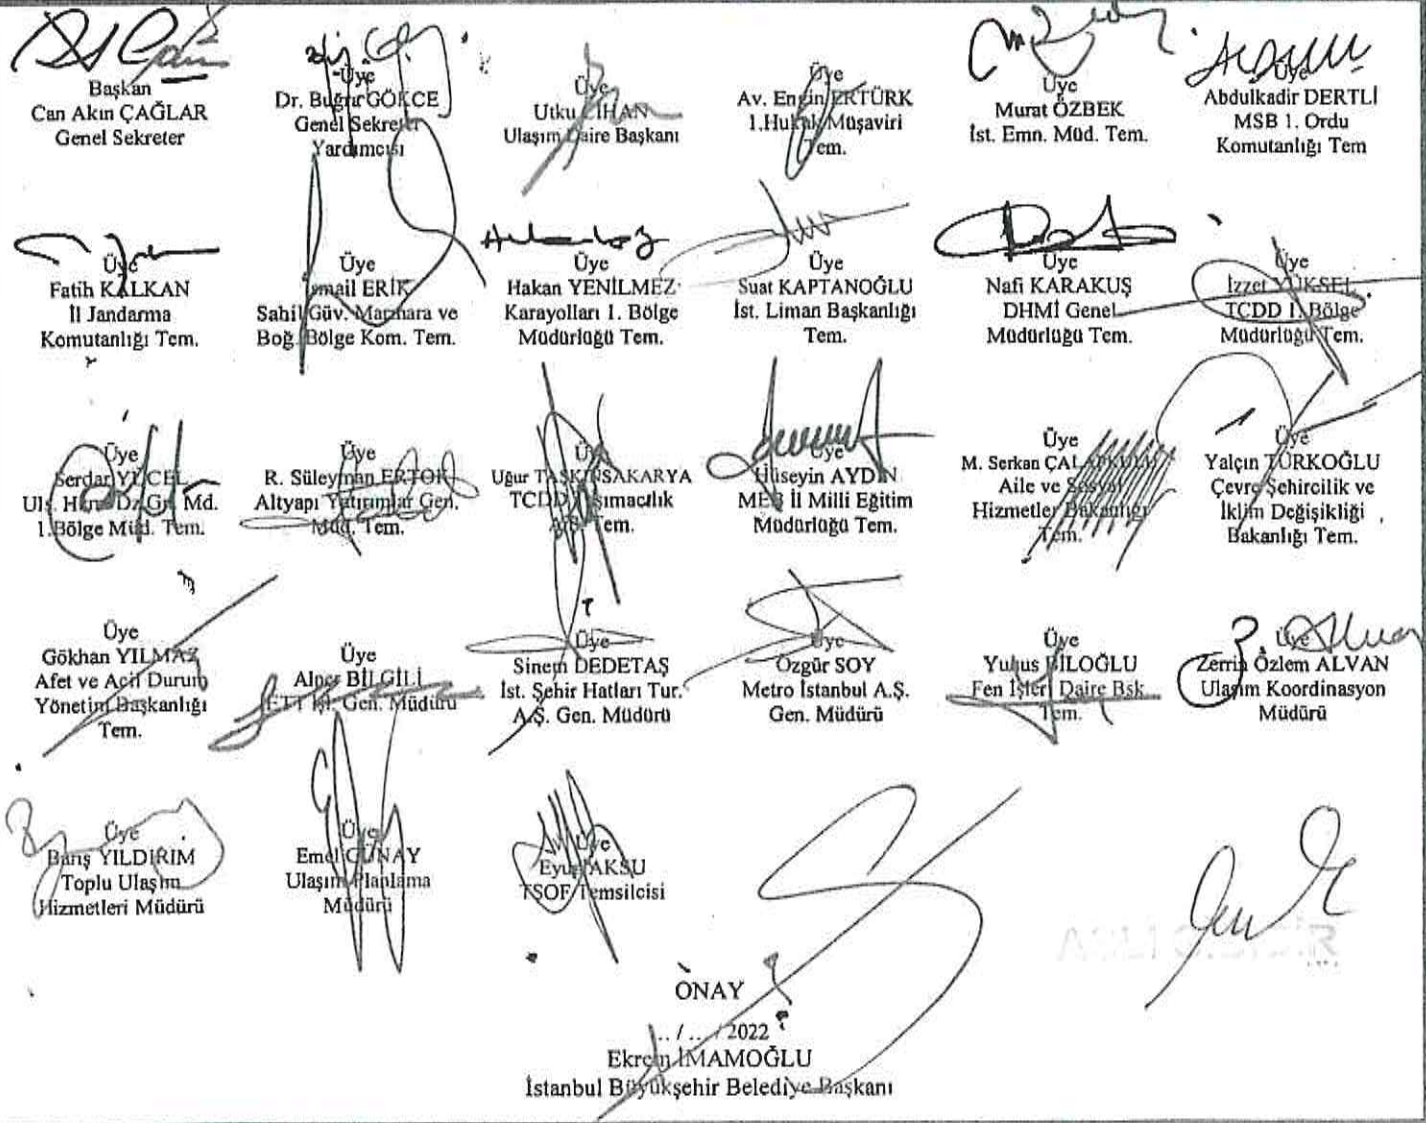 Başkan
Can Akın ÇAĞLAR
Genel Sekreter
Üye
Dr. Buğra GÖKCE
Genel Sekreter
Yardımcısı
Üye
Utku CİHAN
Ulaşım Daire Başkanı
Üye
Av. Engin ERTÜRK
1.Hukuk Müşaviri
Tem.
Üye
Murat ÖZBEK
İst. Emn. Müd. Tem.
Üye
Abdulkadir DERTLİ
MSB 1. Ordu
Komutanlığı Tem
Üye
Fatih KALKAN
İl Jandarma
Komutanlığı Tem.
Üye
İsmail ERİK
Sahil Güv. Marmara ve
Boğ. Bölge Kom. Tem.
Üye
Hakan YENİLMEZ
Karayolları 1. Bölge
Müdürlüğü Tem.
Üye
Suat KAPTANOĞLU
İst. Liman Başkanlığı
Tem.
Üye
Nafi KARAKUŞ
DHMİ Genel
Müdürlüğü Tem.
Üye
İzzet YÜKSEL
TCDD 1. Bölge
Müdürlüğü Tem.
Üye
Serdar YÜCEL
Ulş. Md.
1.Bölge Müd. Tem.
Üye
R. Süleyman ERTOK
Altyapı Yatırımlar Gen.
Müd. Tem.
Üye
Uğur TAŞKINSAKARYA
TCDD Taşımacılık
A.Ş. Tem.
Üye
Hüseyin AYDIN
MEB İl Milli Eğitim
Müdürlüğü Tem.
Üye
M. Serkan
Aile ve Sosyal
Hizmetler Bakanlığı
Tem.
Üye
Yalçın TÜRKOĞLU
Çevre Şehircilik ve
İklim Değişikliği
Bakanlığı Tem.
Üye
Gökhan YILMAZ
Afet ve Acil Durum
Yönetim Başkanlığı
Tem.
Üye
Alper BİLGİLİ
İETT İşl. Gen. Müdürü
Üye
Sinem DEDETAŞ
İst. Şehir Hatları Tur.
A.Ş. Gen. Müdürü
Üye
Özgür SOY
Metro İstanbul A.Ş.
Gen. Müdürü
Üye
Yunus BİLOĞLU
Fen İşleri Daire Bşk.
Tem.
Üye
Zerrin Özlem ALVAN
Ulaşım Koordinasyon
Müdürü
Üye
Barış YILDIRIM
Toplu Ulaşım
Hizmetleri Müdürü
Üye
Emel GÜNAY
Ulaşım Planlama
Müdürü
Üye
Eyup AKSU
TŞOF Temsilcisi
ONAY
.. / ... / 2022
Ekrem İMAMOĞLU
İstanbul Büyükşehir Belediye Başkanı